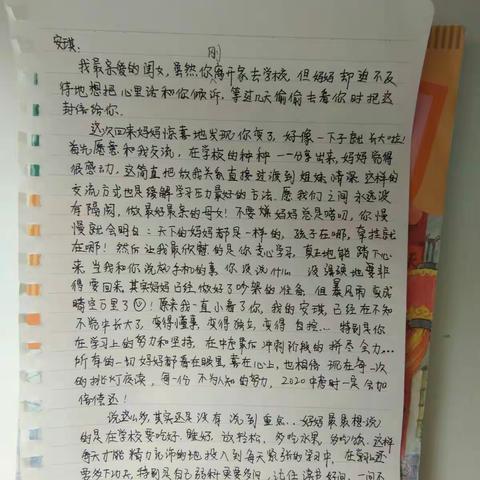 安琪：
我最亲爱的闺女，虽然你刚离开家去学校，但妈妈却迫不及
待地想把心里话和你倾诉，等过几天偷偷去看你时把这
封信给你。
这次回来妈妈惊喜地发现你变了，好像一下子就长大啦！
首先愿意和我交流，在学校的种种一一分享出来，妈妈觉得
很感动，这简直把母女关系直接过渡到姐妹情深 这样的
交流方式也是缓解学习压力最好的方法，愿我们之间永远没
有隔阂，做最好最亲的母女！不要嫌妈妈总是唠叨，你慢
慢就会明白：天下的妈妈都是一样的，孩子在哪，牵挂就
在哪！然后让我最欣慰的是你专心学习，真正地能踏下心
来 当我和你说放手机的事 你没说什么 没 地要非
得要回来，其实妈妈已经做好了吵架的准备 但暴风雨变成
晴空万里了 原来我一直小看了你，我的安琪，已经在不知
不觉中长大了，变得懂事，变得独立，变得自控... 特别是你
在学习上的努力和坚持，在中考最后冲刺阶段的拼尽全力...
所有的一切妈妈都看在眼里，喜在心上，也相信 现在每一次
的挑灯夜读，每一份不为人知的努力，2020中考时一定会加
倍偿还！
说这么多，其实还是没有说到重点... 妈妈最最想说
的是在学校要吃好，睡好，放轻松，多吃水果，多吃 这样
每天才能精力充沛的地投入到每天紧张的学习中，在
要多下功夫，特别是自己弱科更要多问，